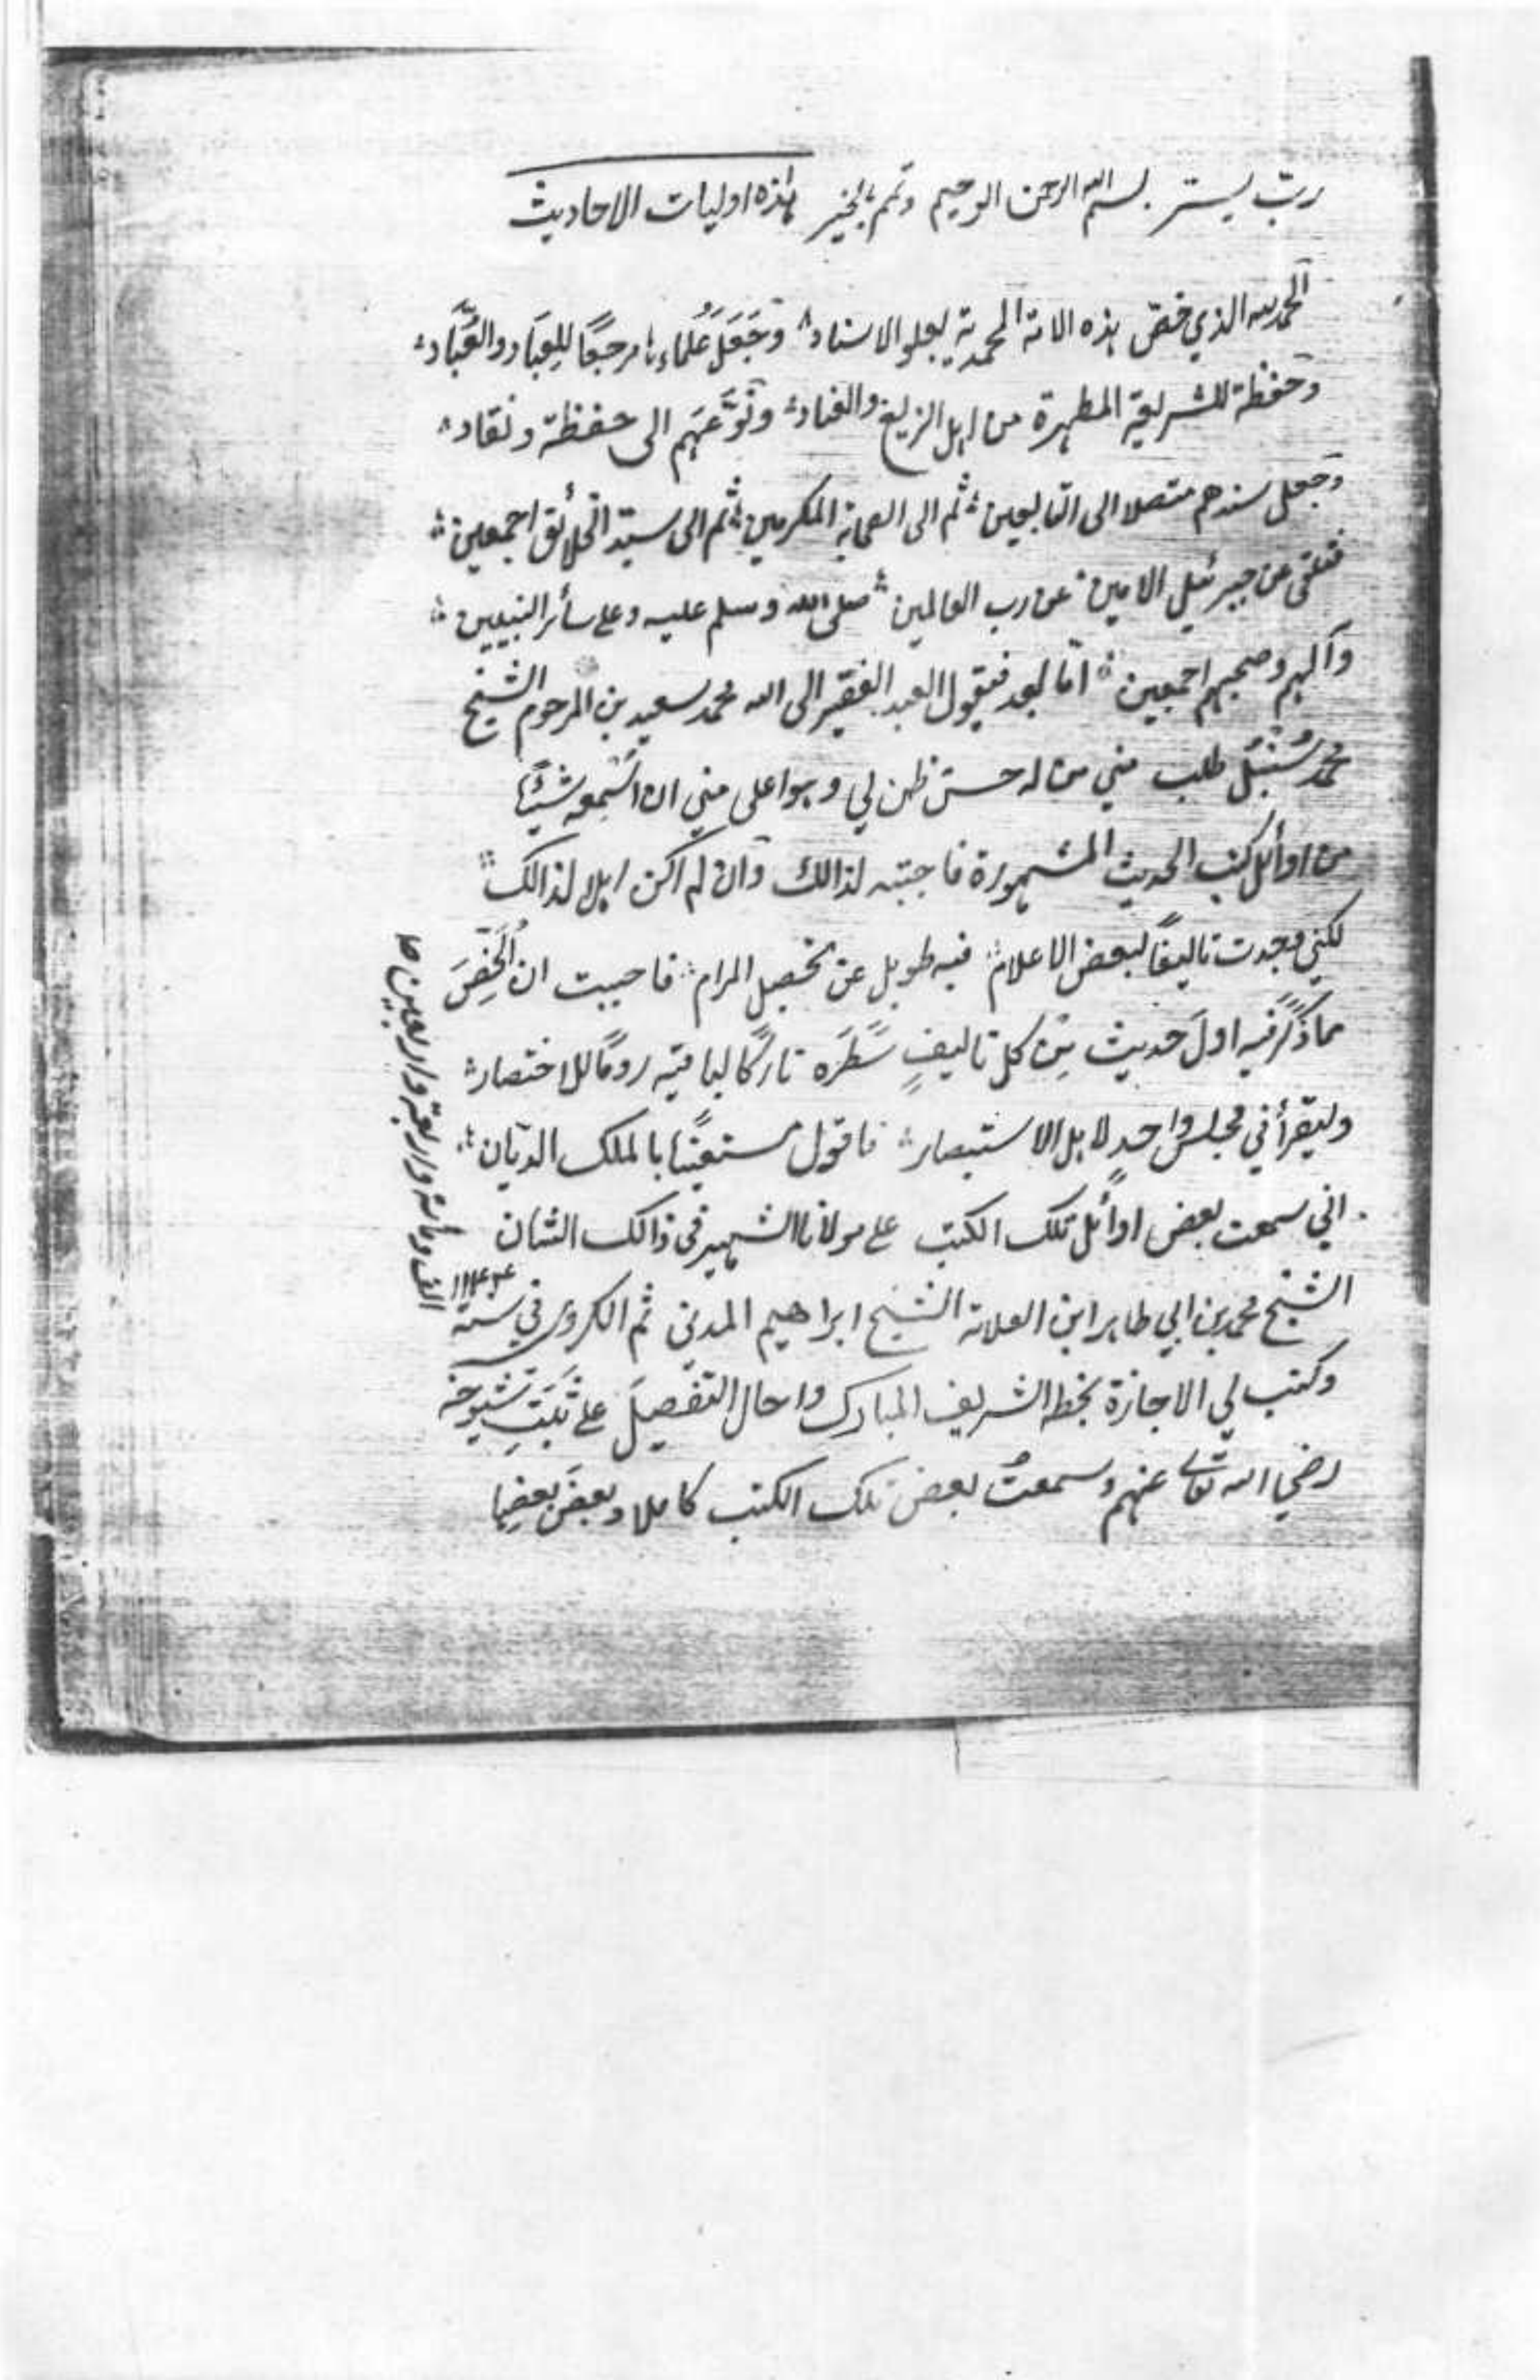 ربّ يسّر بسم الله الرحمن الرحيم وتمم بالخير هذه اوليات الاحاديث
الحمد لله الذي خصّ هذه الامة المحمدية بعلو الاسناد وَجَعَلَ عُلماءها مرجعًا للعِبَاد والعُبَّاد
وحفظة للشريعة المطهرة من اهل الزيغ والعناد ونَوَّعَهم الى حفظة ونقاد
وجعل سندهم متصلا الى التابعين ثم الى الصحابة المكرمين ثم الى سيّد الخلائق اجمعين
فتلقى عن جبرئيل الامين عن رب العالمين صلى الله وسلم عليه وعلى سائر النبيين
وآلهم وصحبهم اجمعين امّا بعد فيقول العبد الفقير الى الله محمد سعيد بن المرحوم الشيخ
محمد سُنْبُل طلب مني من له حسن ظن لي وهو اعلى مني ان اسمعه شيئًا
من اوائل كتب الحديث المشهورة فاجبته لذالك وان لم اكن اهلا لذالك
لكني وجدت تاليفًا لبعض الاعلام فيه طويل عن تحصيل المرام فاحببت ان اُلَخِّصَ
مما ذَكَرَ فيه اولَ حديث مِنْ كل تاليفٍ سَطَرَه تاركًا لباقيه رومًا للاختصار
وليقرأ في مجلس واحدٍ لاهل الاستبصار فاقول مستعينًا بالملك الديان
اني سمعت بعض اوائل تلك الكتب على مولانا الشهير فى ذالك الشان
الشيخ محمد بن ابي طاهر ابن العلامة الشيخ ابراهيم المدنى ثم الكروي في سنة ١١٤٤
الف ومائة واربعة واربعين
وكتب لي الاجازة بخطه الشريف المبارك واحال التفصيلَ على ثَبَتِ شيوخه
رضي الله تعالى عنهم وسمعتُ بعض تلك الكتب كاملا وبعضَ بعضِها